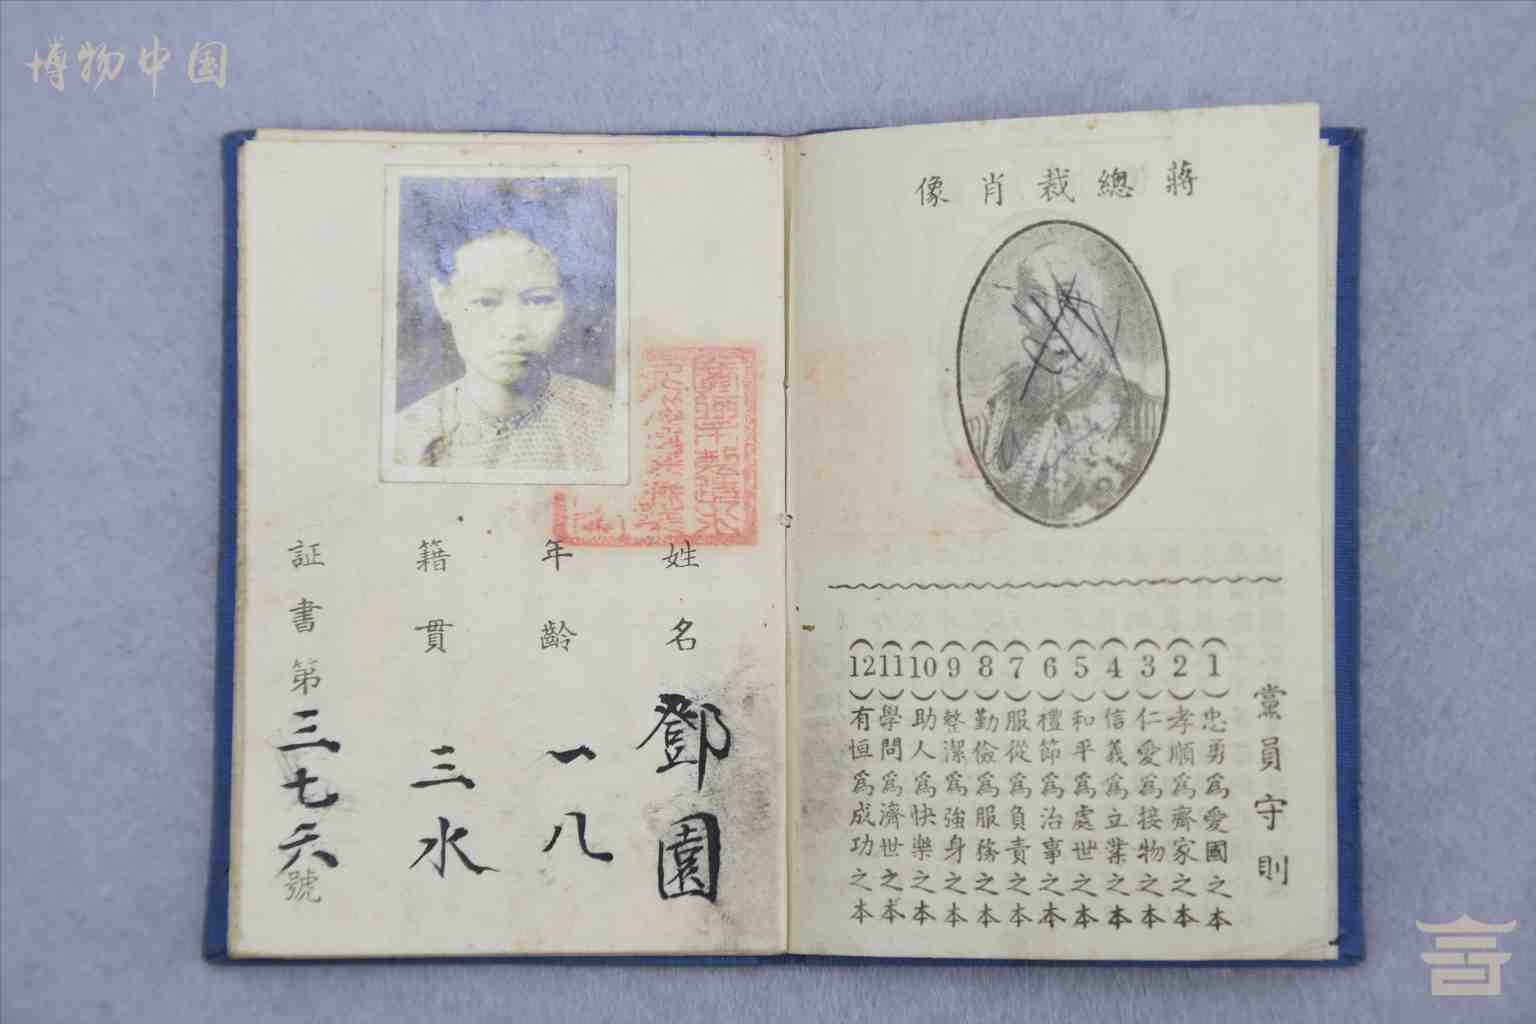 博物中国
蔣總裁肖像
黨員守則
(1)忠勇為愛國之本
(2)孝順為齊家之本
(3)仁愛為接物之本
(4)信義為立業之本
(5)和平為處世之本
(6)禮節為治事之本
(7)服從為負責之本
(8)勤儉為服務之本
(9)整潔為強身之本
(10)助人為快樂之本
(11)學問為濟世之本
(12)有恒為成功之本
姓名 鄧園
年齡 一八
籍貫 三水
証書第三七六號